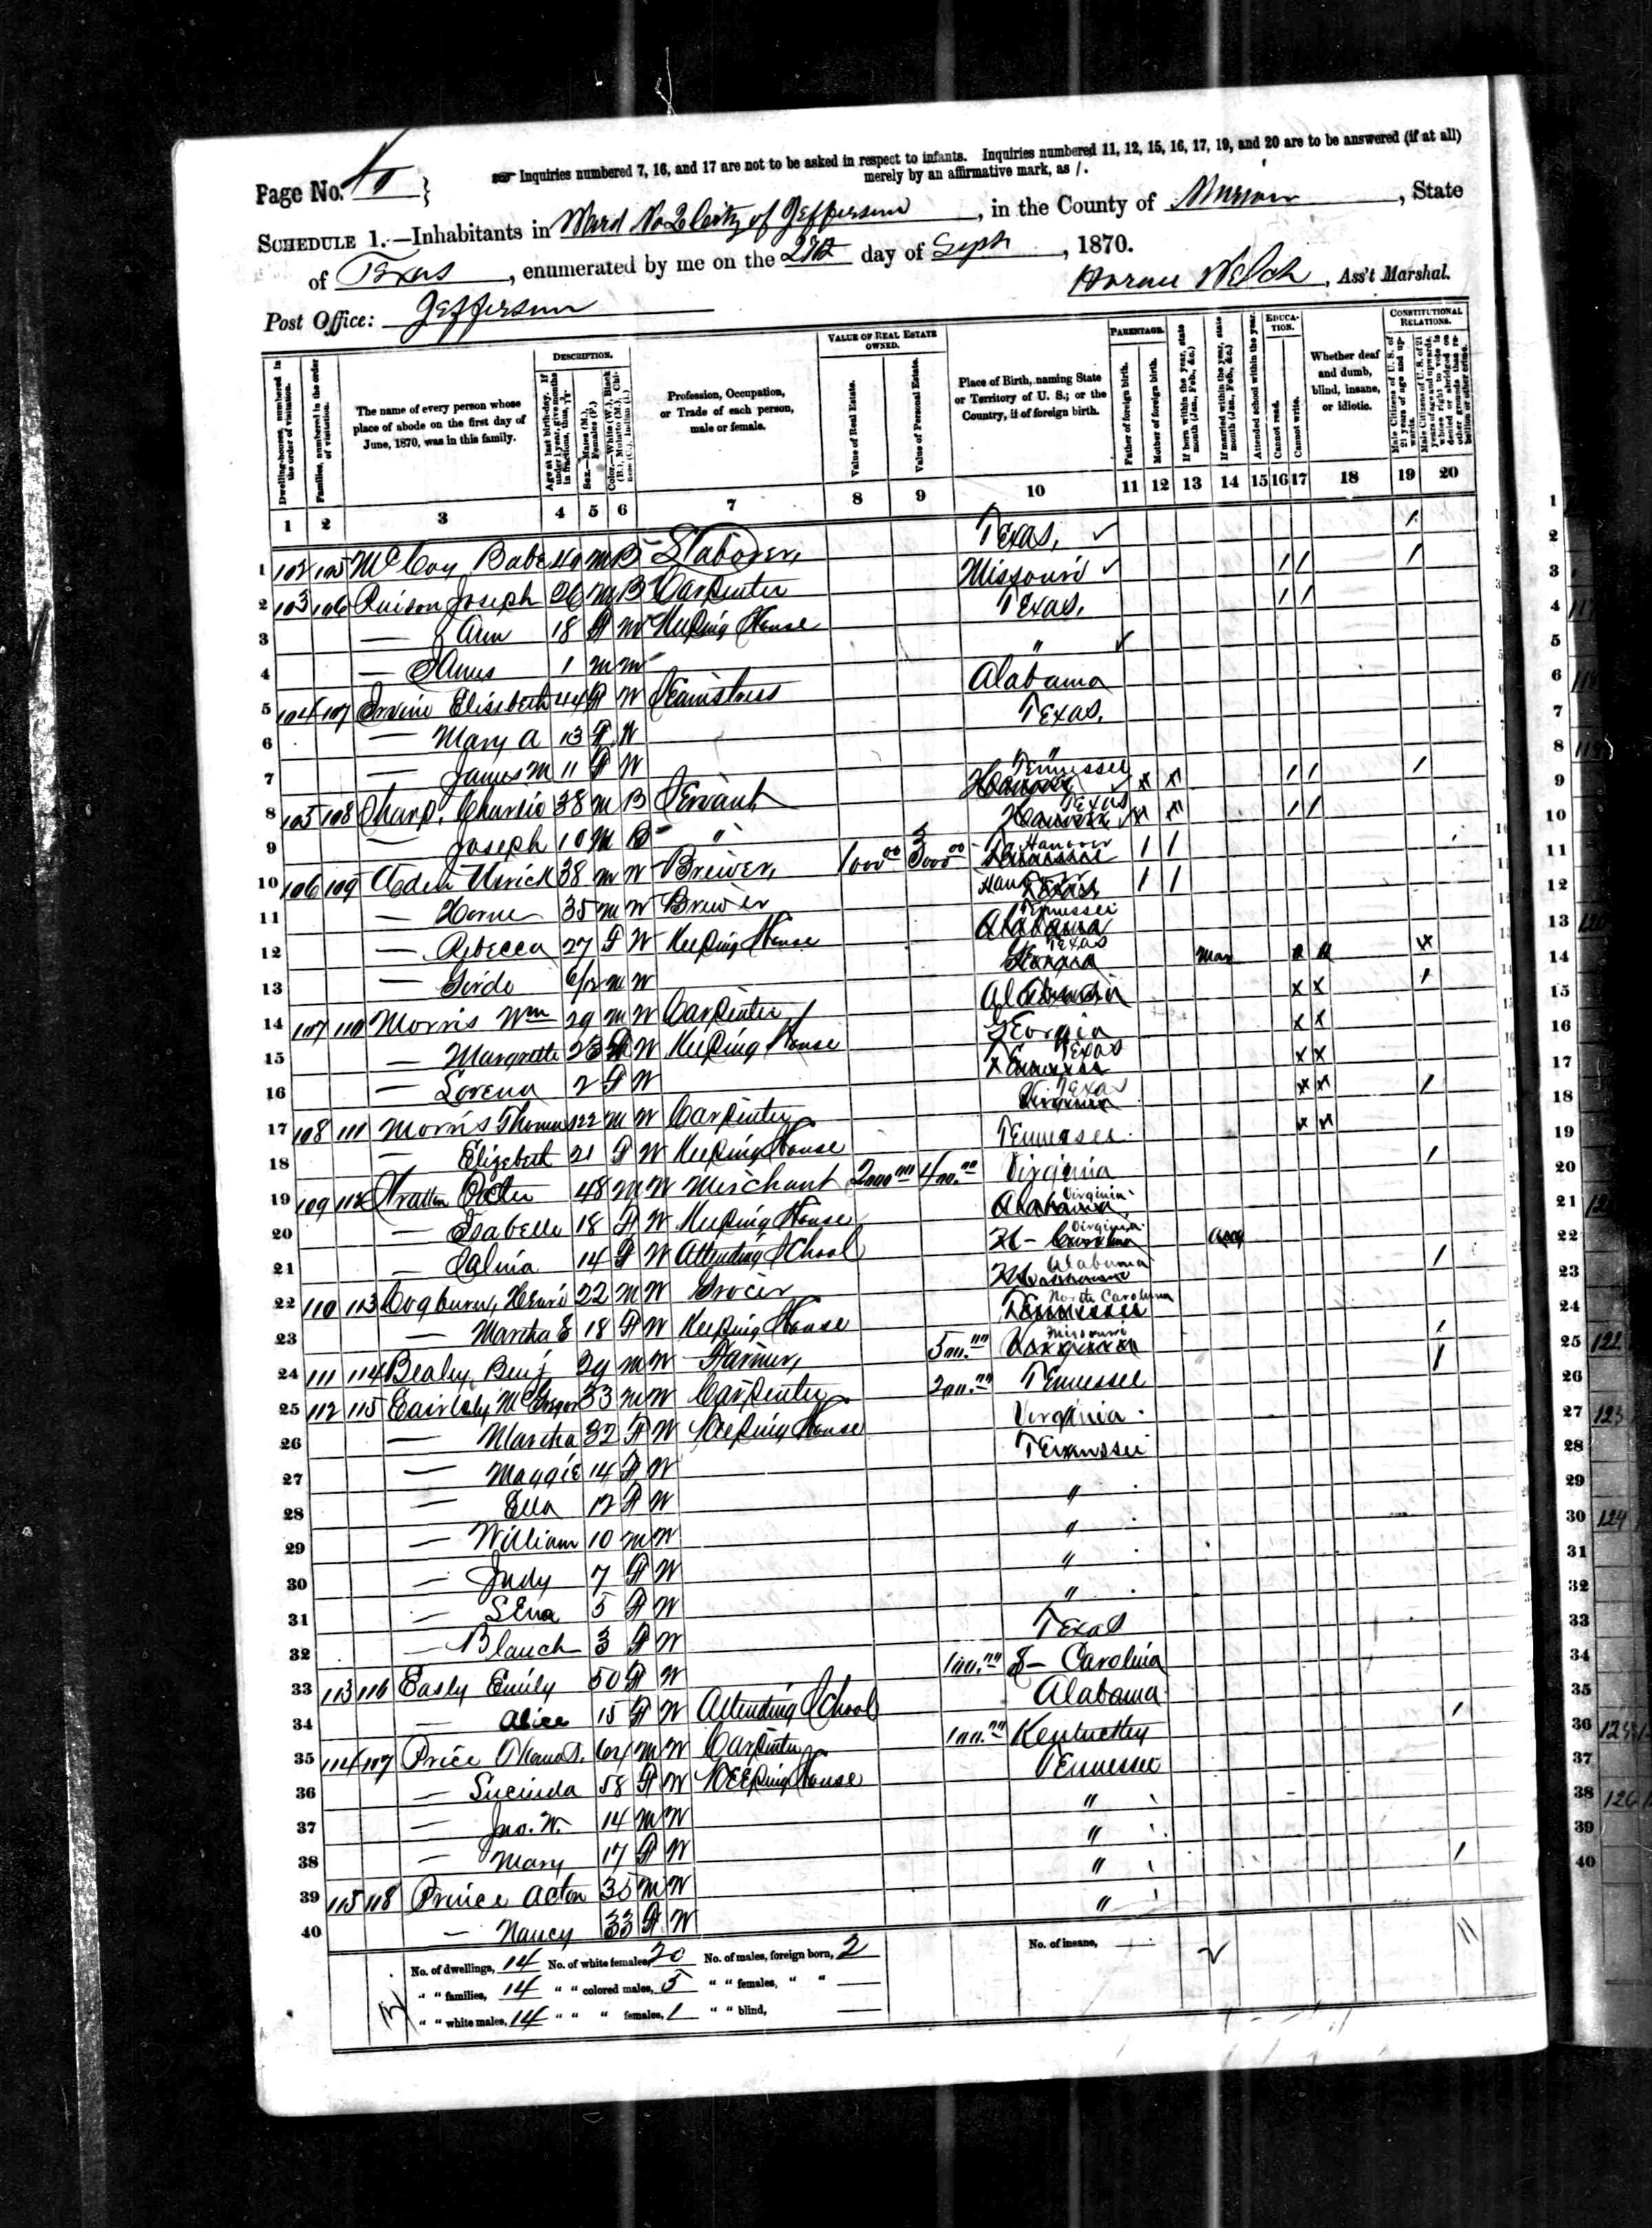 Page No. 10
Inquiries numbered 7, 16, and 17 are not to be asked in respect to infants. Inquiries numbered 11, 12, 15, 16, 17, 19, and 20 are to be answered (if at all)
merely by an affirmative mark, as /.
SCHEDULE 1.—Inhabitants in Ward No 2 City of Jefferson, in the County of Marion, State
of Texas, enumerated by me on the day of Sept, 1870.
Post Office: Jefferson
Horace Welch, Ass't Marshal.
Dwelling-houses, numbered in the order of visitation.
Families, numbered in the order of visitation.
The name of every person whose place of abode on the first day of June, 1870, was in this family.
DESCRIPTION.
Age at last birth-day. If under 1 year, give months in fractions, thus,
Sex.—Males (M.), Females (F.)
Color.—White (W.), Black (B.), Mulatto (M.), Chinese (C.), Indian (I.)
Profession, Occupation, or Trade of each person, male or female.
VALUE OF REAL ESTATE OWNED.
Value of Real Estate.
Value of Personal Estate.
Place of Birth, naming State or Territory of U. S.; or the Country, if of foreign birth.
PARENTAGE.
Father of foreign birth.
Mother of foreign birth.
If born within the year, state month (Jan., Feb., &c.)
If married within the year, state month (Jan., Feb., &c.)
Attended school within the year.
EDUCATION.
Cannot read.
Cannot write.
Whether deaf and dumb, blind, insane, or idiotic.
CONSTITUTIONAL RELATIONS.
Male Citizens of U. S. of 21 years of age and upwards.
Male Citizens of U. S. of 21 years of age and upwards, whose right to vote is denied or abridged on other grounds than rebellion or other crime.
1 2 3 4 5 6 7 8 9 10 11 12 13 14 15 16 17 18 19 20
1 102 105 McCoy Babe M B Laborer Texas /
2 103 106 Joseph 26 M B Carpenter Missouri / / /
3 — Ann 18 F Keeping House Texas / /
4 — 1 M M "
5 104 107 Elisabeth 44 F W Seamstress Alabama
6 — Mary A 13 F W Texas
7 — James M 11 F W "
8 105 108 Sharp, Charlie 38 M B Servant Tennessee x x / / /
9 — Joseph 10 M B " Texas x x / /
10 106 109 Aden Ulrick 38 M W Brewer 1000 3000 Hanover / /
11 — 35 M W Brewer Hanover / /
12 — Rebecca 27 F W Keeping House Tennessee
13 — 6/12 M W Texas
14 107 110 Morris Wm 29 M W Carpenter Alabama x x /
15 — Margrette 23 F W Keeping House Georgia x x
16 — Lorena 2 F W Texas x x
17 108 111 Morris Thomas 22 M W Carpenter Texas x x /
18 — Elizebeth 21 F W Keeping House Tennessee x x
19 109 112 48 M W Merchant 2000 400 Virginia /
20 — Isabelle 18 F W Keeping House Virginia
21 — Salina 14 F W Attending School Virginia
22 110 113 Cogburn, Henri 22 M W Grocer Alabama /
23 — Martha E 18 F W Keeping House North Carolina
24 111 114 Bealy Benj 29 M W Farmer 500 Missouri /
25 112 115 McGregor 33 M W Carpenter 200 Tennessee /
26 — Martha 32 F W Keeping House Virginia
27 — Maggie 14 F W Tennessee
28 — Ella 12 F W "
29 — William 10 M W "
30 — Judy 7 F W "
31 — 5 F W "
32 — Blanch 3 F W Texas
33 113 116 Easly Emily 50 F W 100 S— Carolina
34 — Alice 15 F W Attending School Alabama
35 114 117 Price 64 M W Carpenter 100 Kentuckey /
36 — Lucinda 58 F W Keeping House Tennessee
37 — Jno. W. 14 M W "
38 — Mary 17 F W "
39 115 118 Prince Acton 35 M W " /
40 — Nancy 33 F W "
No. of dwellings, 14 No. of white females, 20 No. of males, foreign born, 2 No. of insane, —
" " families, 14 " " colored males, 5 " " females, " " —
" " white males, 14 " " " females, 1 " " blind, —